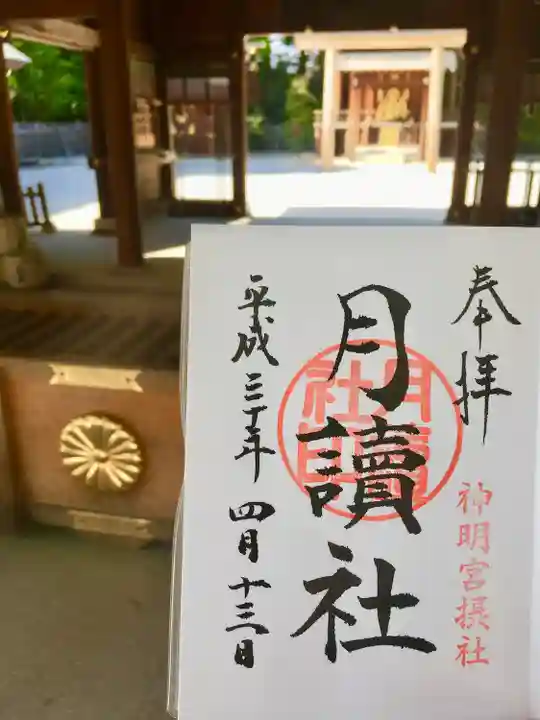 奉拝
神明宮摂社
月讀社
月讀社印
平成三十年四月十三日